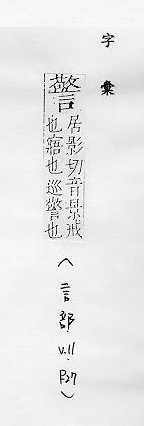 字彙
警
居影切音景戒
也寤也巡警也
（言部.v.11.P.27）